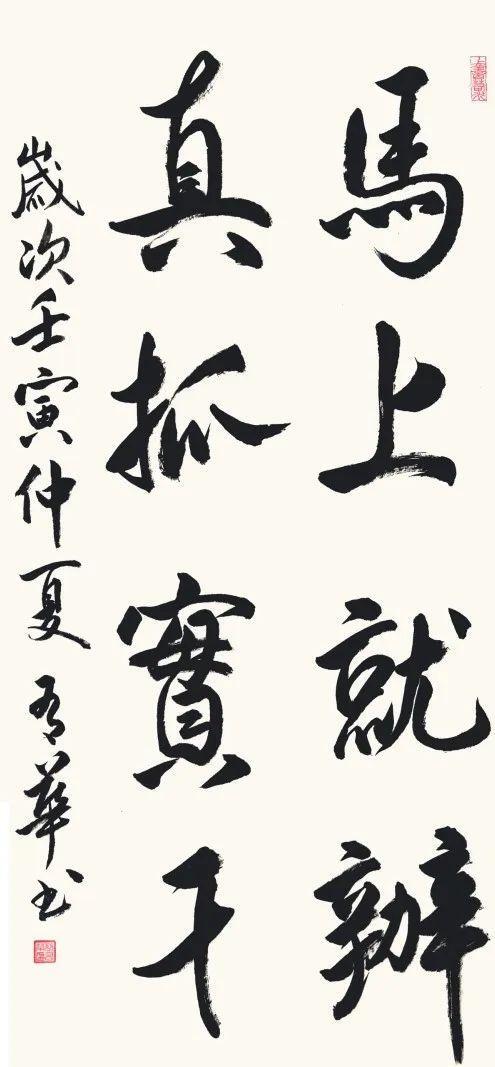 馬上就辦
真抓實干
歲次壬寅仲夏 有華书